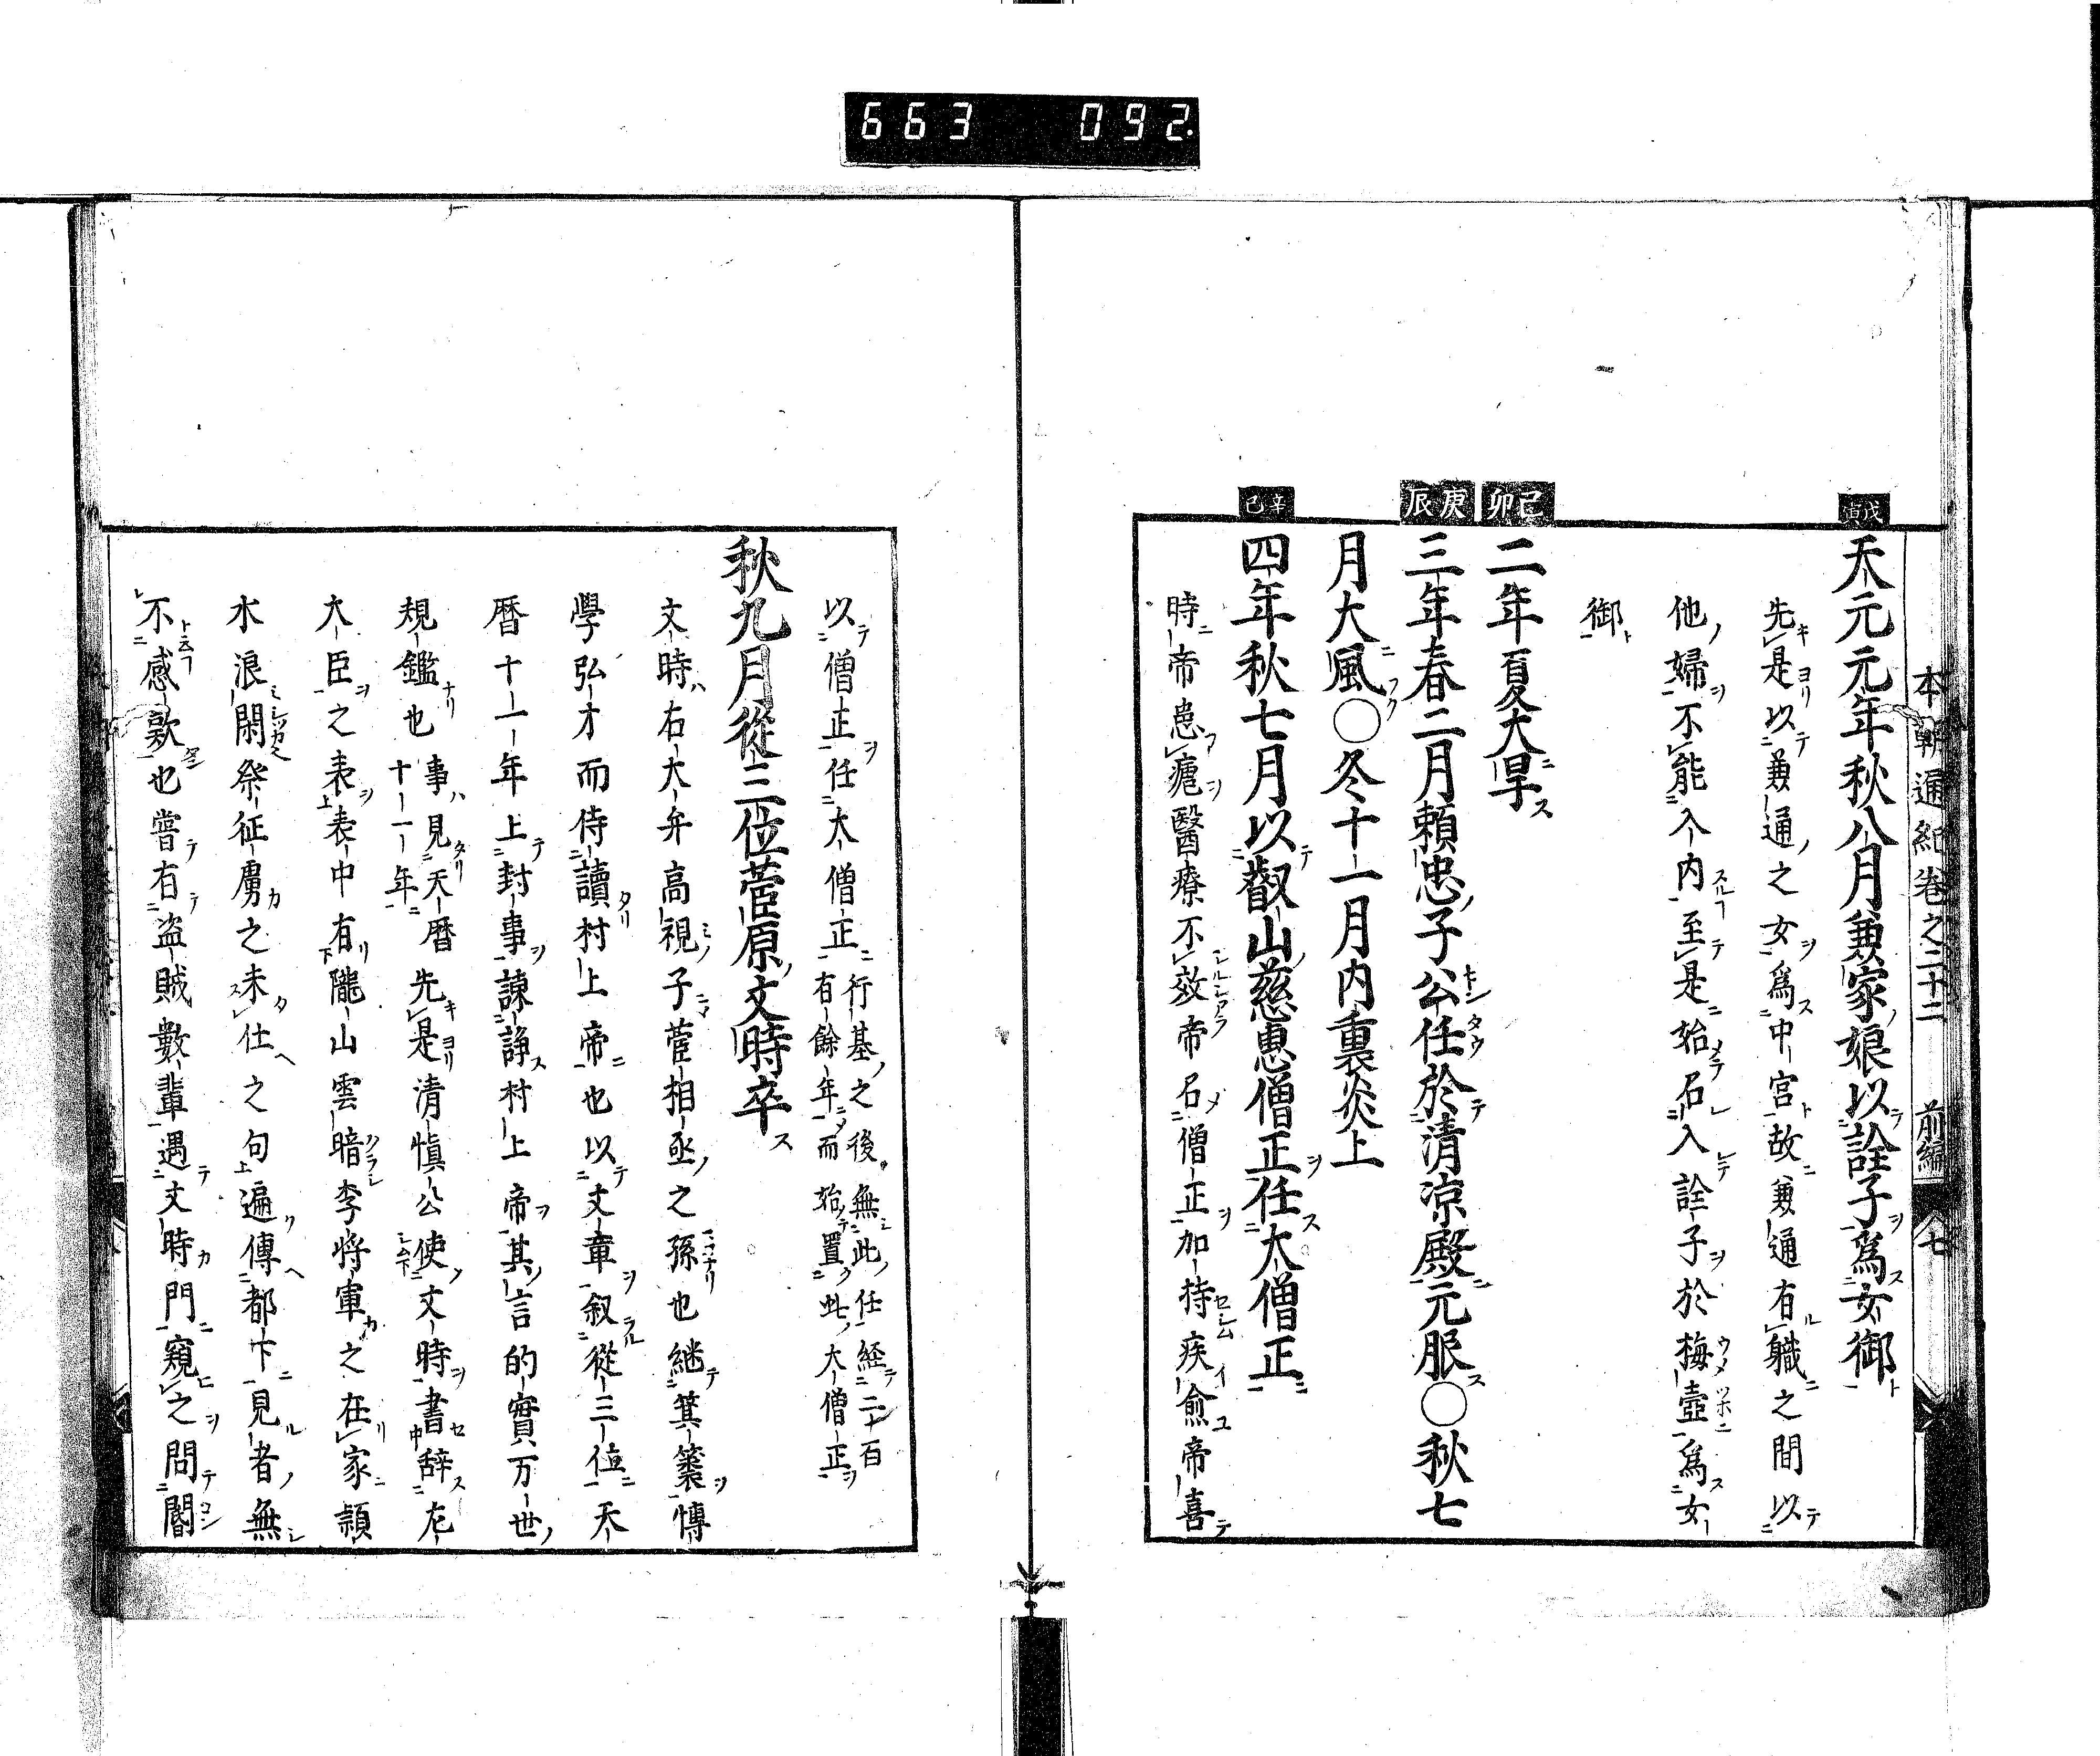 663 092.
本朝通紀卷之二十二 前編 七
戊寅
天元元年秋八月兼家娘以詮子爲女御
先是以兼通之女爲中宮故兼通有職之間以
他婦不能入内至是始召入詮子於梅壺爲女
御
己卯
二年夏大旱
庚辰
三年春二月頼忠子公任於清涼殿元服〇秋七
月大風〇冬十一月内裏炎上
辛巳
四年秋七月以叡山慈惠僧正任大僧正
時帝患瘧醫療不效帝召僧正加持疾愈帝喜
以僧正任大僧正行基之後無此任経二十百
有餘年而始置此大僧正
秋九月從三位菅原文時卒
文時右大弁高視子菅相丞之孫也継箕裘博
學弘才而侍讀村上帝也以文章叙從三位天
暦十一年上封事諫諍村上帝其言的實万世
規鑑也事見天暦十一年先是清愼公使文時書辞左
大臣之表表中有隴山雲暗李將軍之在家潁
水浪閑祭征虜之未仕之句遍傳都下見者無
不感歎也嘗有盗賊數輩遇文時門窺之問閽